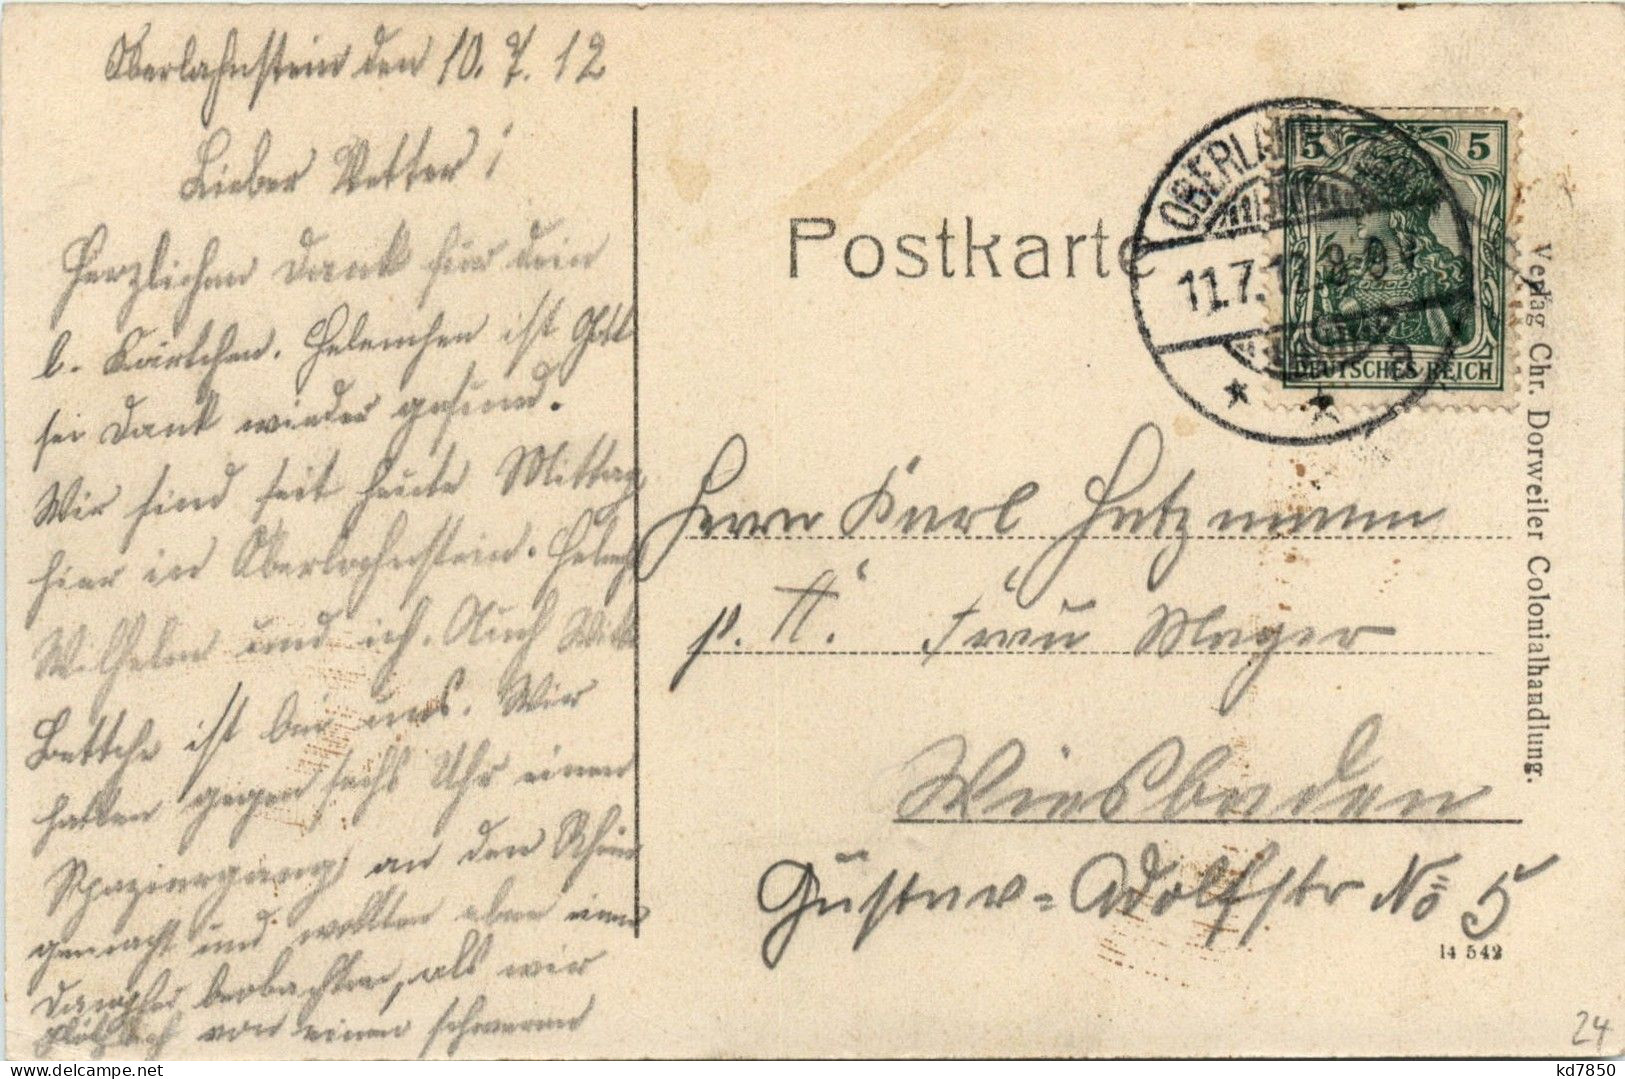 Oberlahnstein den 10. 7. 12
Lieber Vetter!
Herzlichen Dank für dein
l. Kärtchen. Helenchen ist Gott
sei Dank wieder gesund.
Wir sind seit heute Mittag
hier in Oberlahnstein. Helench
Wilhelm und ich. Auch
ist bei uns. Wir
hatten gegen sechs Uhr einen
Spaziergang an den Rhein
gemacht und wollten eben einen
Dampfer beobachten, als wir
plötzlich von einem schweren
Postkarte
OBERLAHNSTEIN
11.7.12.8-9V
a
5 5
DEUTSCHES REICH
Herrn Karl Hatzmann
p. A. Frau Mayer
Wiesbaden
Gustav=Adolfstr No 5
14 542
Verlag Chr. Dorweiler Colonialhandlung.
24
kd7850